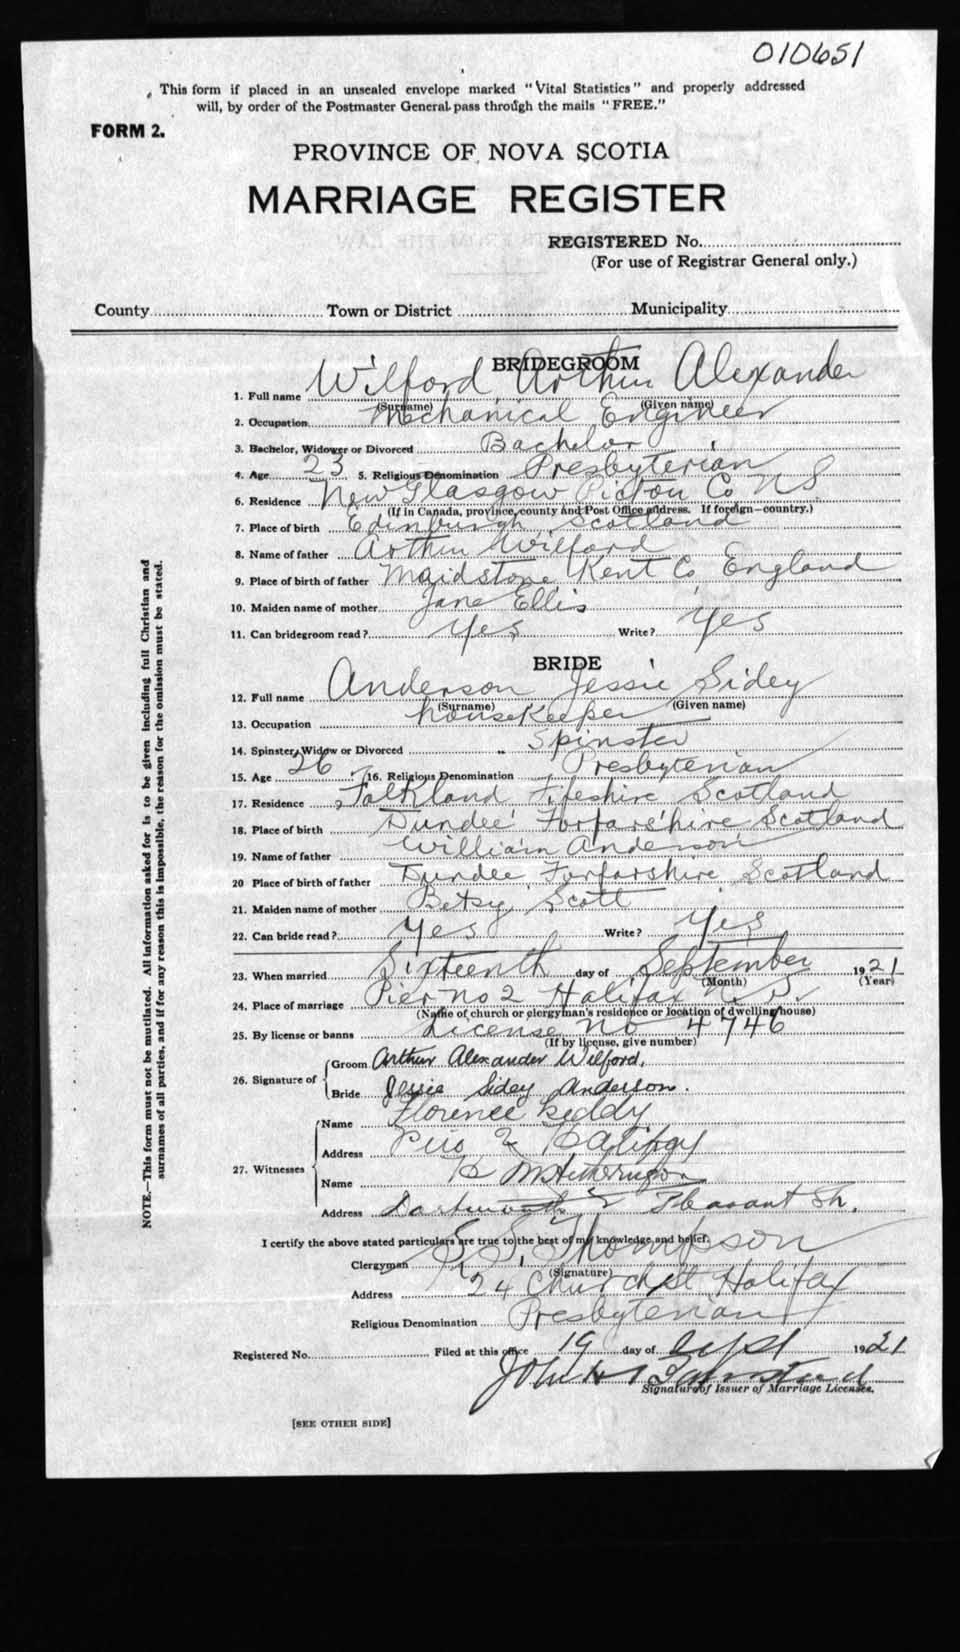 010651
This form if placed in an unsealed envelope marked "Vital Statistics" and properly addressed
will, by order of the Postmaster General pass through the mails "FREE."
FORM 2.
PROVINCE OF NOVA SCOTIA
MARRIAGE REGISTER
REGISTERED No.
(For use of Registrar General only.)
County Town or District Municipality
BRIDEGROOM
1. Full name Wilford Arthur Alexander
(Surname) (Given name)
2. Occupation Mechanical Engineer
3. Bachelor, Widower or Divorced Bachelor
4. Age 23 5. Religious Denomination Presbyterian
6. Residence New Glasgow Pictou Co N S
(If in Canada, province, county and Post Office address. If foreign—country.)
7. Place of birth Edinburgh Scotland
8. Name of father Arthur Wilford
9. Place of birth of father Maidstone Kent Co England
10. Maiden name of mother Jane Ellis
11. Can bridegroom read? Yes Write? Yes
BRIDE
12. Full name Anderson Jessie Sidey
(Surname) (Given name)
13. Occupation housekeeper
14. Spinster, Widow or Divorced Spinster
15. Age 26 16. Religious Denomination Presbyterian
17. Residence Falkland Fifeshire Scotland
18. Place of birth Dundee Forfarshire Scotland
19. Name of father William Anderson
20 Place of birth of father Dundee Forfarshire Scotland
21. Maiden name of mother Betsy Scott
22. Can bride read? Yes Write? Yes
23. When married Sixteenth day of September 1921
(Month) (Year)
24. Place of marriage Pier No 2 Halifax N. S.
(Name of church or clergyman's residence or location of dwelling house)
25. By license or banns License No 4746
(If by license, give number)
26. Signature of
Groom Arthur Alexander Wilford.
Bride Jessie Sidey Anderson.
27. Witnesses
Name Florence
Address 2
Name H
Address Pleasant St.
I certify the above stated particulars are true to the best of my knowledge and belief.
Clergyman Thompson
(Signature)
Address 24 Church St Halifax
Religious Denomination Presbyterian
Registered No. Filed at this office 19 day of Sept 1921
John
Signature of Issuer of Marriage Licenses.
[SEE OTHER SIDE]
NOTE.—This form must not be mutilated. All information asked for is to be given including full Christian and
surnames of all parties, and if for any reason this is impossible, the reason for the omission must be stated.